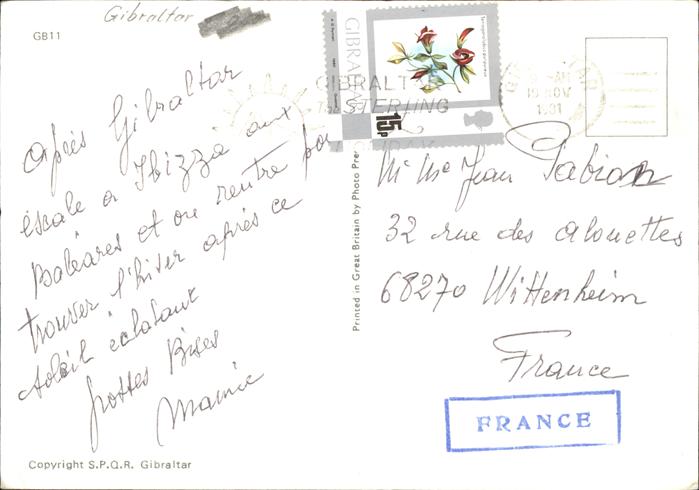 Gibraltar
GB11
après Gibraltar
éscale a Ibizza aux
Baléares et on rentre pour
trouver l'hiver après ce
soleil éclatant
Grosses Bises
Mamie
Copyright S.P.Q.R. Gibraltar
Printed in Great Britain by Photo Pre
GIBRALTAR
15p
GIBRALTAR
STERLING
NOV
1981
M Me Jean Fabian
32 rue des alouettes
68270 Wittenheim
France
FRANCE